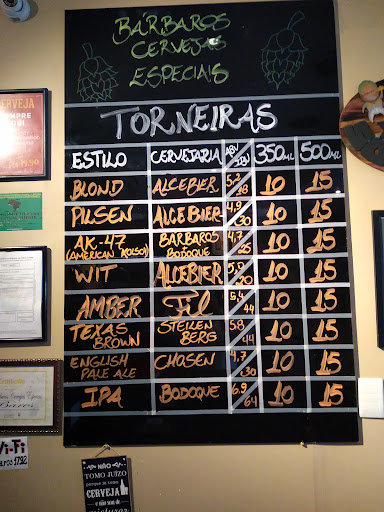 BÁRBAROS
CERVEJAS
ESPECIAIS
TORNEIRAS
ESTILO CERVEJARIA ABV IBU 350ML 500ML
BLOND ALCEBIER 5,2 18 10 15
PILSEN ALCEBIER 4,9 .30 10 15
AK-47 (AMERICAN KOLSCH) BÁRBAROS + BODOQUE 4,7 .25 10 15
WIT ALCEBIER 5,0 .20 10 15
AMBER Fil 5,4 44 10 15
TEXAS BROWN STEILEN BERG 5.8 44 10 15
ENGLISH PALE ALE CHOSEN 4,7 .30 10 15
IPA BODOQUE 6,9 64 10 15
CERVEJA
Wi-Fi
1792
NÃO
TOMO JUÍZO
CERVEJA